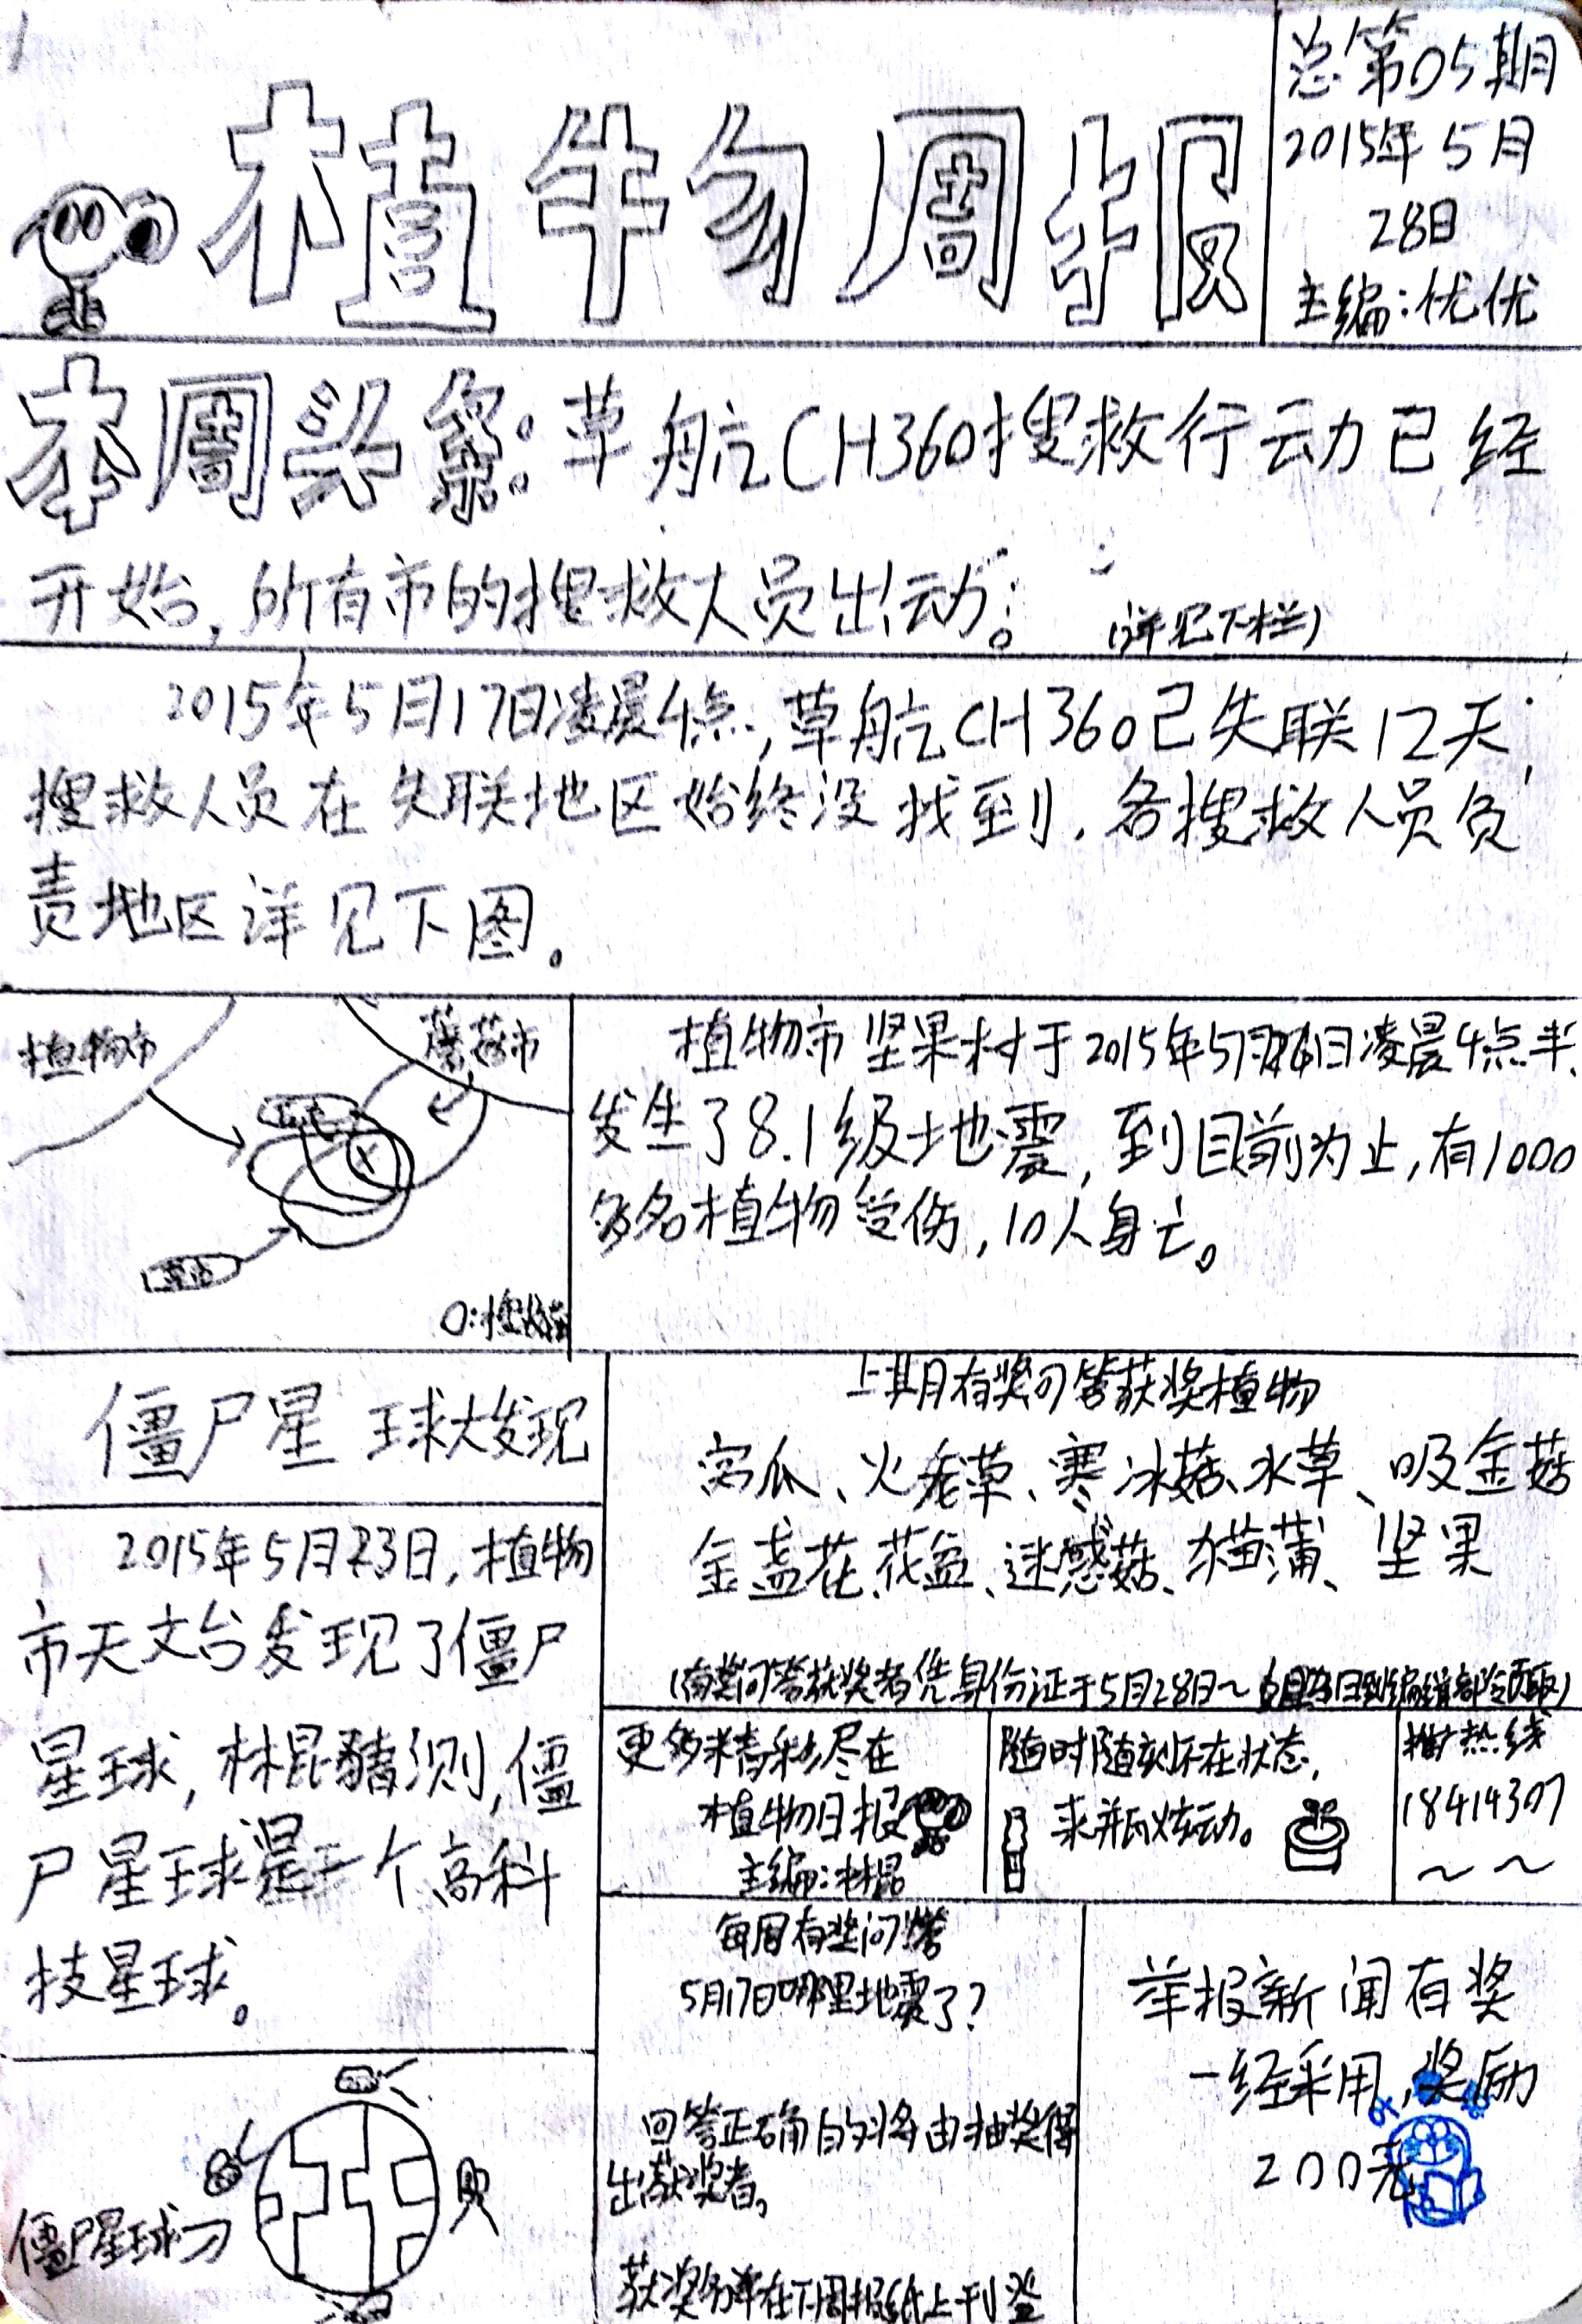 植物周报
总第05期
2015年5月
28日
主编:优优
本周头条:草航CH360搜救行动已经
开始,所有市的搜救人员出动。
(详见下栏)
2015年5月17日凌晨4点,草航CH360已失联12天,
搜救人员在失联地区始终没找到.各搜救人员负
责地区详见下图。
植物市
蘑菇市
植物市坚果村于2015年5月26日凌晨4点半,
发生了8.1级地震,到目前为止,有1000
多名植物受伤,10人身亡。
僵尸星球大发现
2015年5月23日,植物
市天文台发现了僵尸
星球,林昆猜测,僵
尸星球是一个高科
技星球。
僵尸星球
上期有奖问答获奖植物
窝瓜、火龙草、寒冰菇、水草、吸金菇
金盏花、花盆、迷惑菇、猫蒲、坚果
(有奖问答获奖者凭身份证于5月28日~
更多精彩尽在
植物日报
主编:林昆
随时随刻不在状态,
来瓶炫动。
热线
18414307
~ ~
每周有奖问答
5月17日哪里地震了?
回答正确的将由抽奖得
出获奖者。
获奖名单在下周报纸上刊登
举报新闻有奖
一经采用,奖励
200元